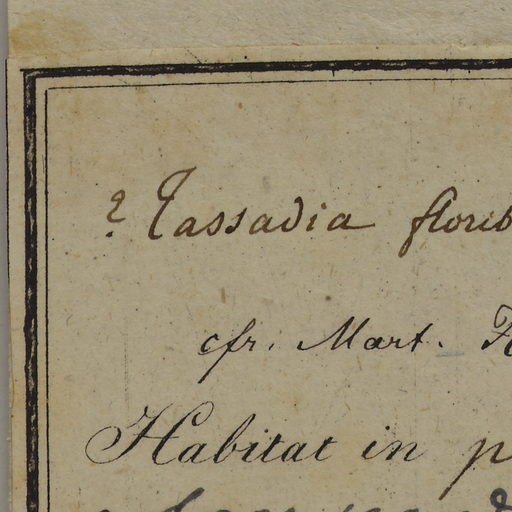 ? Tassadia florib
cfr. Mart. F
Habitat in p